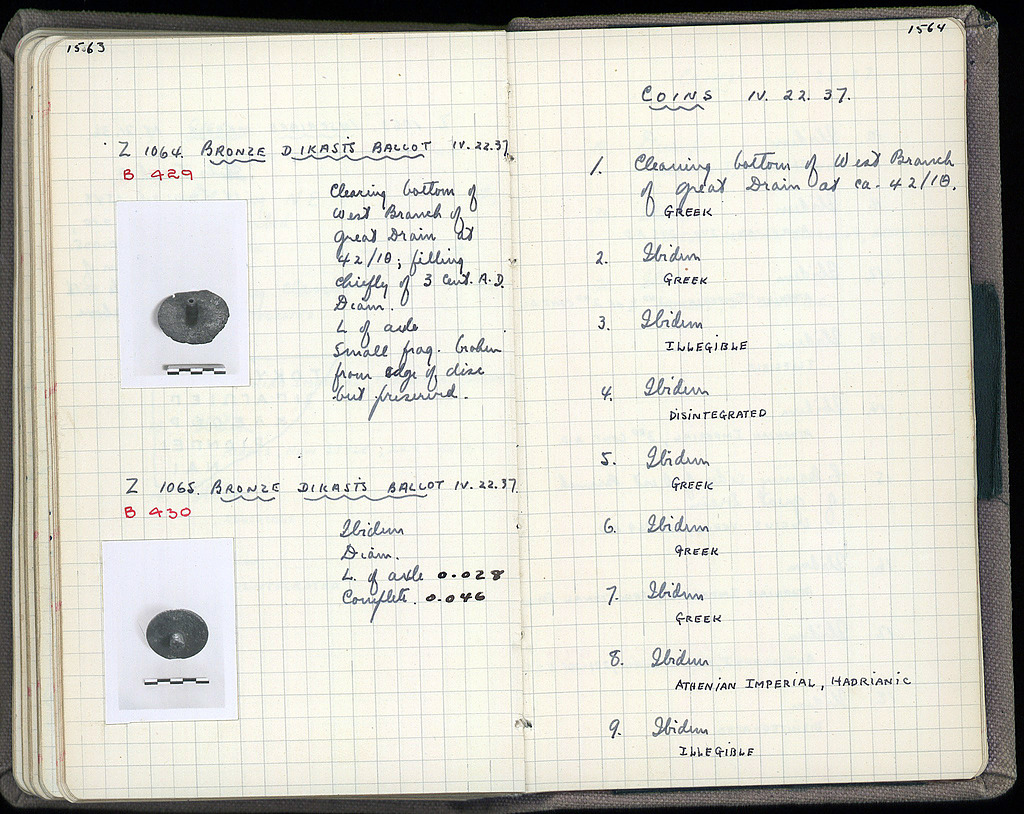 1563
Z 1064. BRONZE DIKAST'S BALLOT IV.22.37
B 429
Clearing bottom of
West Branch of
Great Drain at
42/ΙΘ; filling
chiefly of 3 Cent. A.D.
Diam.
L of axle
Small frag. broken
from edge of disc
but preserved.
Z 1065. BRONZE DIKAST'S BALLOT IV.22.37
B 430
Ibidem
Diam.
L. of axle 0.028
Complete. 0.046
1564
COINS IV. 22. 37.
1. Cleaning bottom of West Branch
of Great Drain at ca. 42/ΙΘ.
GREEK
2. Ibidem
GREEK
3. Ibidem
ILLEGIBLE
4. Ibidem
DISINTEGRATED
5. Ibidem
GREEK
6. Ibidem
GREEK
7. Ibidem
GREEK
8. Ibidem
ATHENIAN IMPERIAL, HADRIANIC
9. Ibidem
ILLEGIBLE